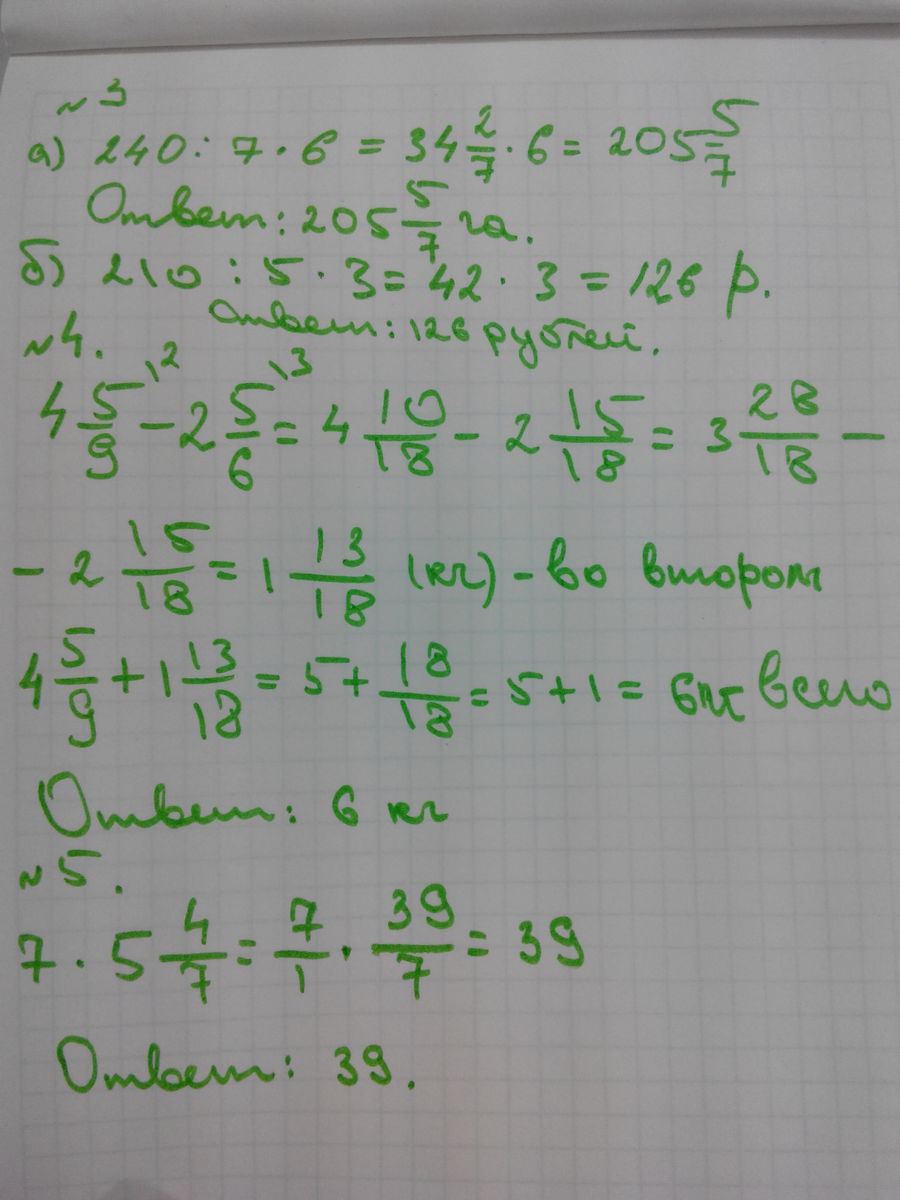 №3
а) 240 : 7 · 6 = 34 2/7 · 6 = 205 5/7
Ответ: 205 5/7 га.
б) 210 : 5 · 3 = 42 · 3 = 126 р.
Ответ: 126 рублей.
№4.
4 5/9 \2 - 2 5/6 \3 = 4 10/18 - 2 15/18 = 3 28/18 -
- 2 15/18 = 1 13/18 (кг) - во втором
4 5/9 + 1 13/18 = 5 + 18/18 = 5 + 1 = 6 кг всего
Ответ: 6 кг
№5.
7 · 5 4/7 = 7/1 · 39/7 = 39
Ответ: 39.